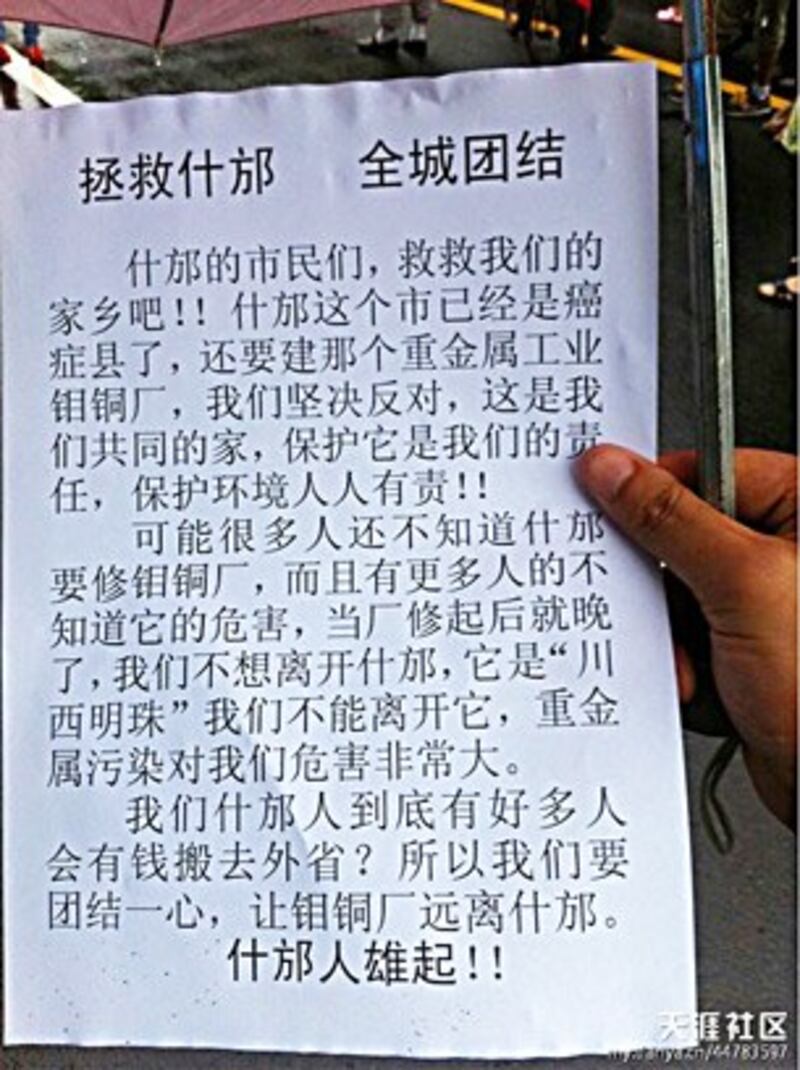 拯救什邡 全城团结
什邡的市民们，救救我们的
家乡吧!! 什邡这个市已经是癌
症县了，还要建那个重金属工业
钼铜厂，我们坚决反对，这是我
们共同的家，保护它是我们的责
任，保护环境人人有责!!
可能很多人还不知道什邡
要修钼铜厂，而且有更多人的不
知道它的危害，当厂修起后就晚
了，我们不想离开什邡，它是“川
西明珠”我们不能离开它，重金
属污染对我们危害非常大。
我们什邡人到底有好多人
会有钱搬去外省？所以我们要
团结一心，让钼铜厂远离什邡。
什邡人雄起!!
天涯社区